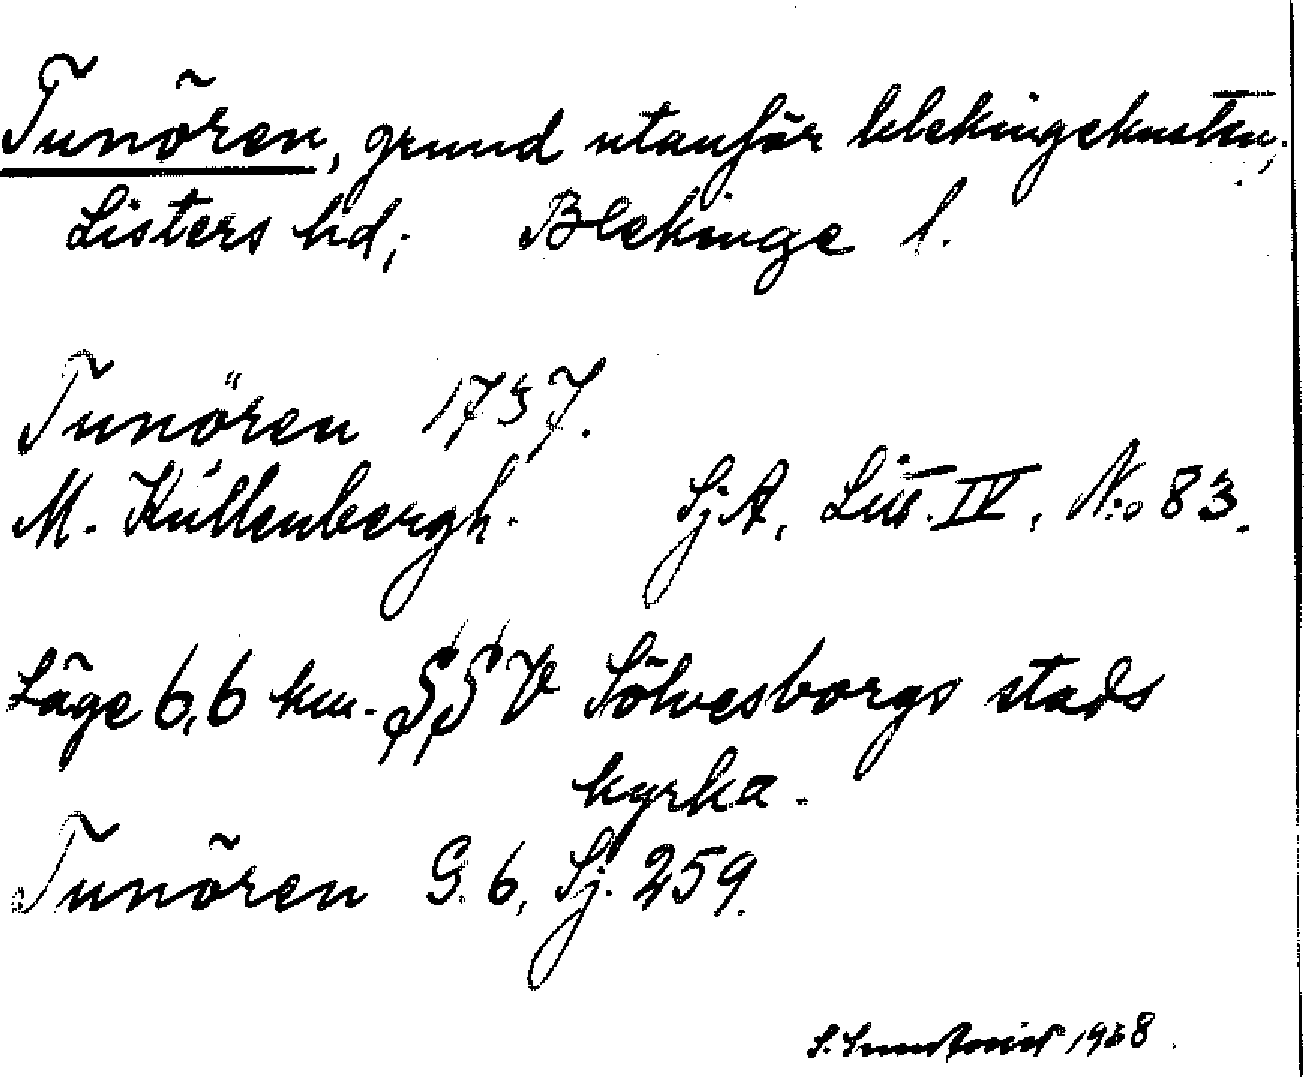 Tunören, grund utanför blekingekusten,
Listers hd; Blekinge l.
Tunören 1757.
M. Kullenbergh. SjA, Litt. IV, No 83.
Läge 6,6 km. SSV Sölvesborgs stads
kyrka.
Tunören G. 6, Sj. 259.
S. 1938.